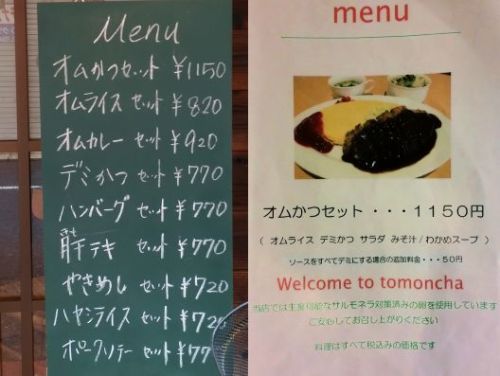 Menu
オムかつセット ¥1150
オムライス セット ¥820
オムカレー セット ¥920
デミかつ セット ¥770
ハンバーグ セット ¥770
テキ セット ¥770
やきめし セット ¥720
ハヤシライス セット ¥720
ポークソテー セット ¥77
menu
オムかつセット・・・1150円
( オムライス デミかつ サラダ みそ汁/わかめスープ )
ソースをすべてデミにする場合の追加料金・・・50円
Welcome to tomoncha
当店では生産可能なサルモネラ対策済みの卵を使用しています
ご安心してお召し上がりください
料理はすべて税込みの価格です